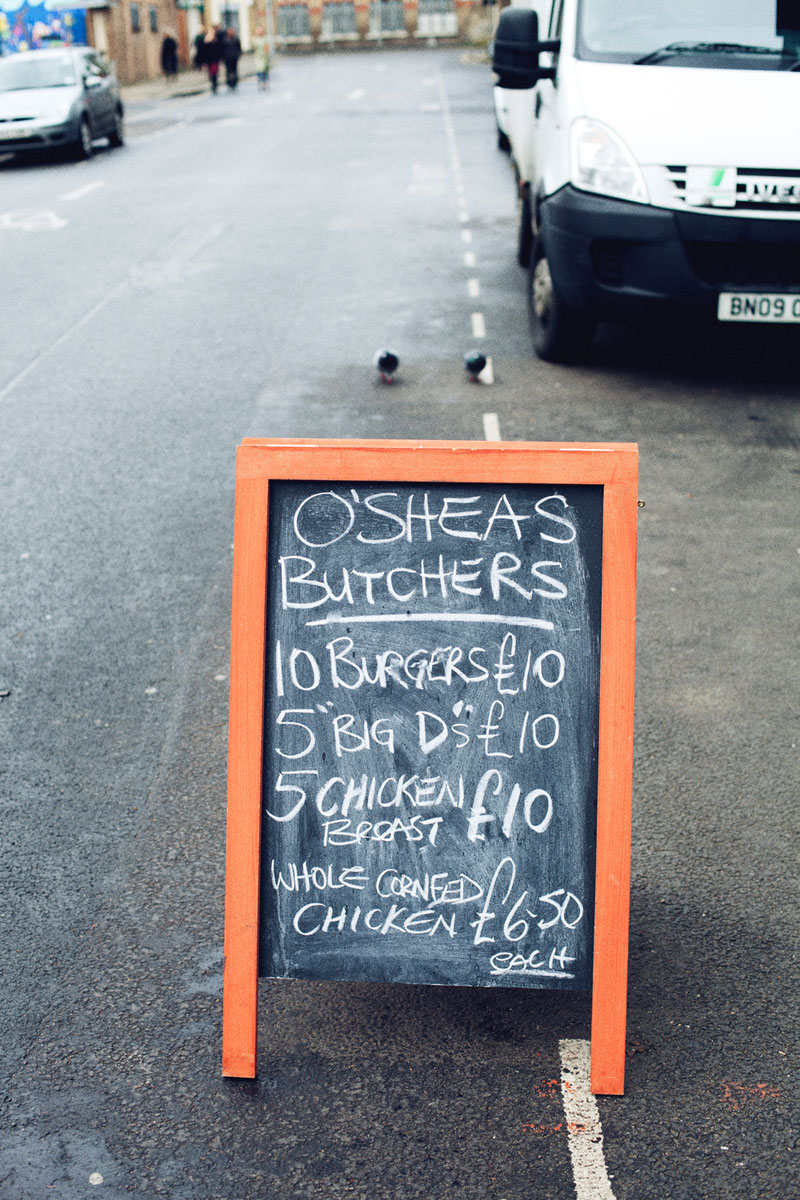 O'SHEAS
BUTCHERS
10 BURGERS £10
5 "BIG D"s £10
5 CHICKEN BREAST £10
WHOLE CORNFED
CHICKEN £6.50
EACH
IVECO
BN09